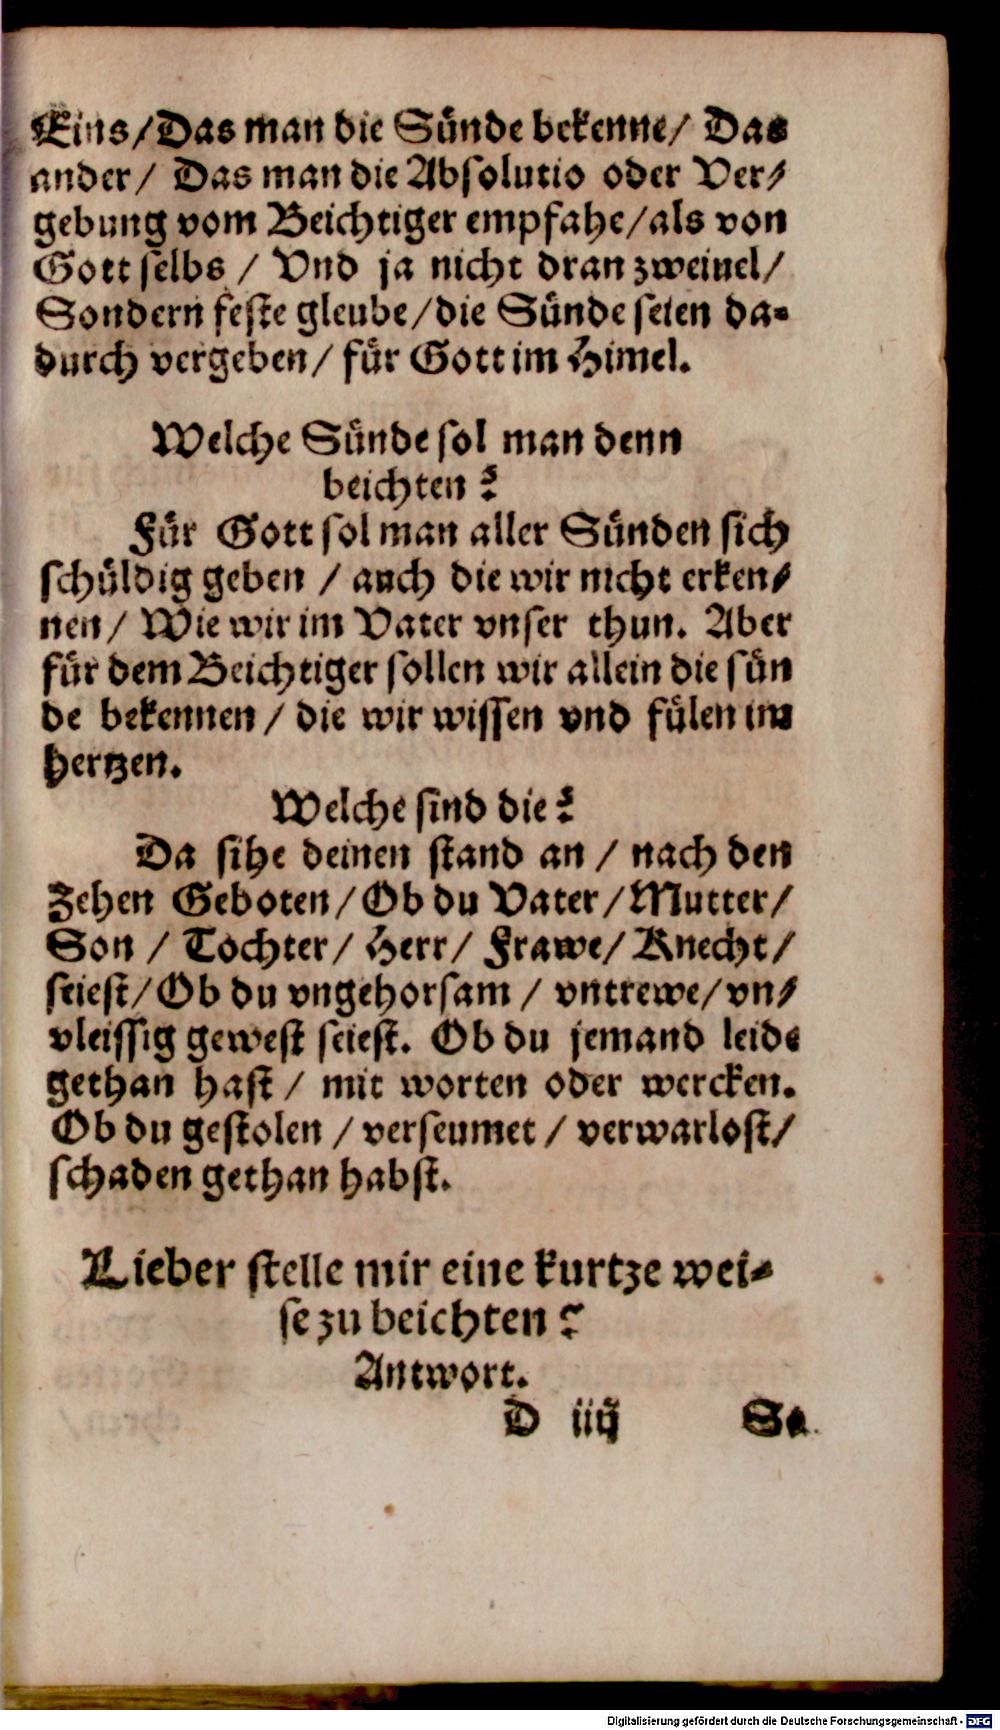 Eins/Das man die Sünde bekenne/ Das
ander/ Das man die Absolutio oder Ver/
gebung vom Beichtiger empfahe/als von
Gott selbs / Vnd ja nicht dran zweiuel/
Sondern feste gleube/die Sünde seien da-
durch vergeben/ für Gott im Himel.
Welche Sünde sol man denn
beichten?
Für Gott sol man aller Sünden sich
schüldig geben / auch die wir nicht erken/
nen/ Wie wir im Vater vnser thun. Aber
für dem Beichtiger sollen wir allein die sün
de bekennen / die wir wissen vnd fülen im
hertzen.
Welche sind die?
Da sihe deinen stand an / nach den
Zehen Geboten/Ob du Vater/Mutter/
Son / Tochter/ Herr/ Frawe/ Knecht/
seiest/Ob du vngehorsam / vntrewe/vn/
vleissig gewest seiest. Ob du jemand leide
gethan hast / mit worten oder wercken.
Ob du gestolen / verseumet / verwarlost/
schaden gethan habst.
Lieber stelle mir eine kurtze wei-
se zu beichten?
Antwort.
D iiij So
Digitalisierung gefördert durch die Deutsche Forschungsgemeinschaft - DFG